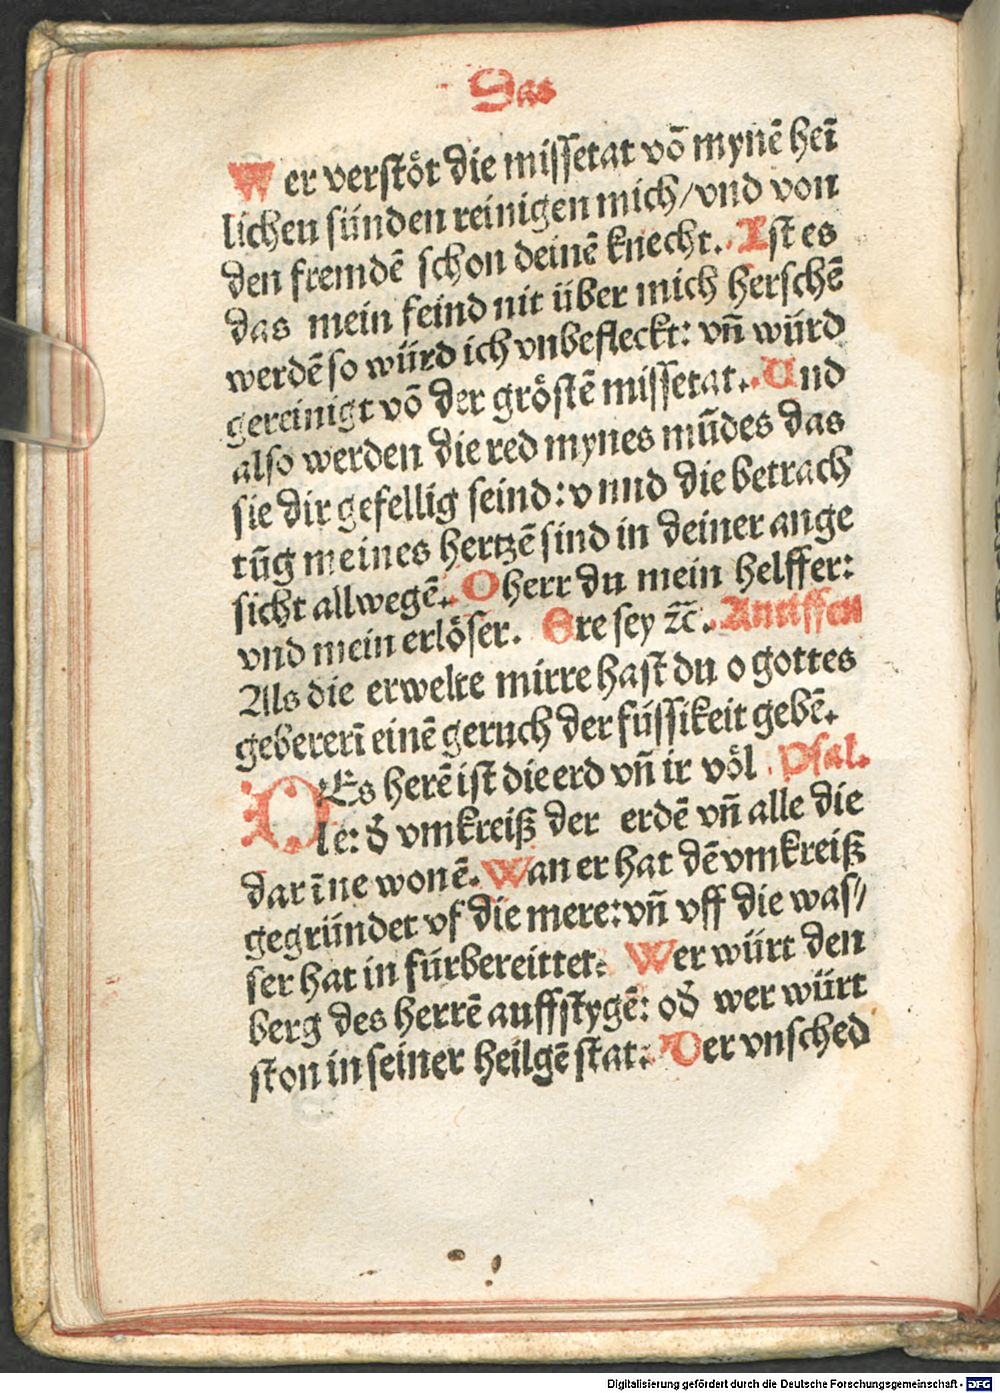 Das
Wer verstöt die missetat võ mynē heī
lichen sünden reinigen mich/vnd von
den fremdē schon deinē knecht. Ist es
das mein feind nit über mich herschē
werdē so würd ich vnbefleckt: vñ würd
gereinigt võ der gröstē missetat. Und
also werden die red mynes mūdes das
sie dir gefellig seind: vnnd die betrach
tūg meines hertzē sind in deiner ange
sicht allwegē. O herr du mein helffer:
vnd mein erlöser. Ere sey ꝛc̄. Antiffen
Als die erwelte mirre hast du o gottes
gebererī einē geruch der süssikeit gebē.
DEs herē ist die erd vñ ir völ Psal.
le: d̄ vmkreiß der erdē vñ alle die
dar īne wonē. Wan er hat dē vmkreiß
gegründet vf die mere: vñ vff die was/
ser hat in fürbereittet. Wer würt den
berg des herrē auffstygē: od̄ wer würt
ston in seiner heilgē stat: Der vnsched
Digitalisierung gefördert durch die Deutsche Forschungsgemeinschaft - DFG